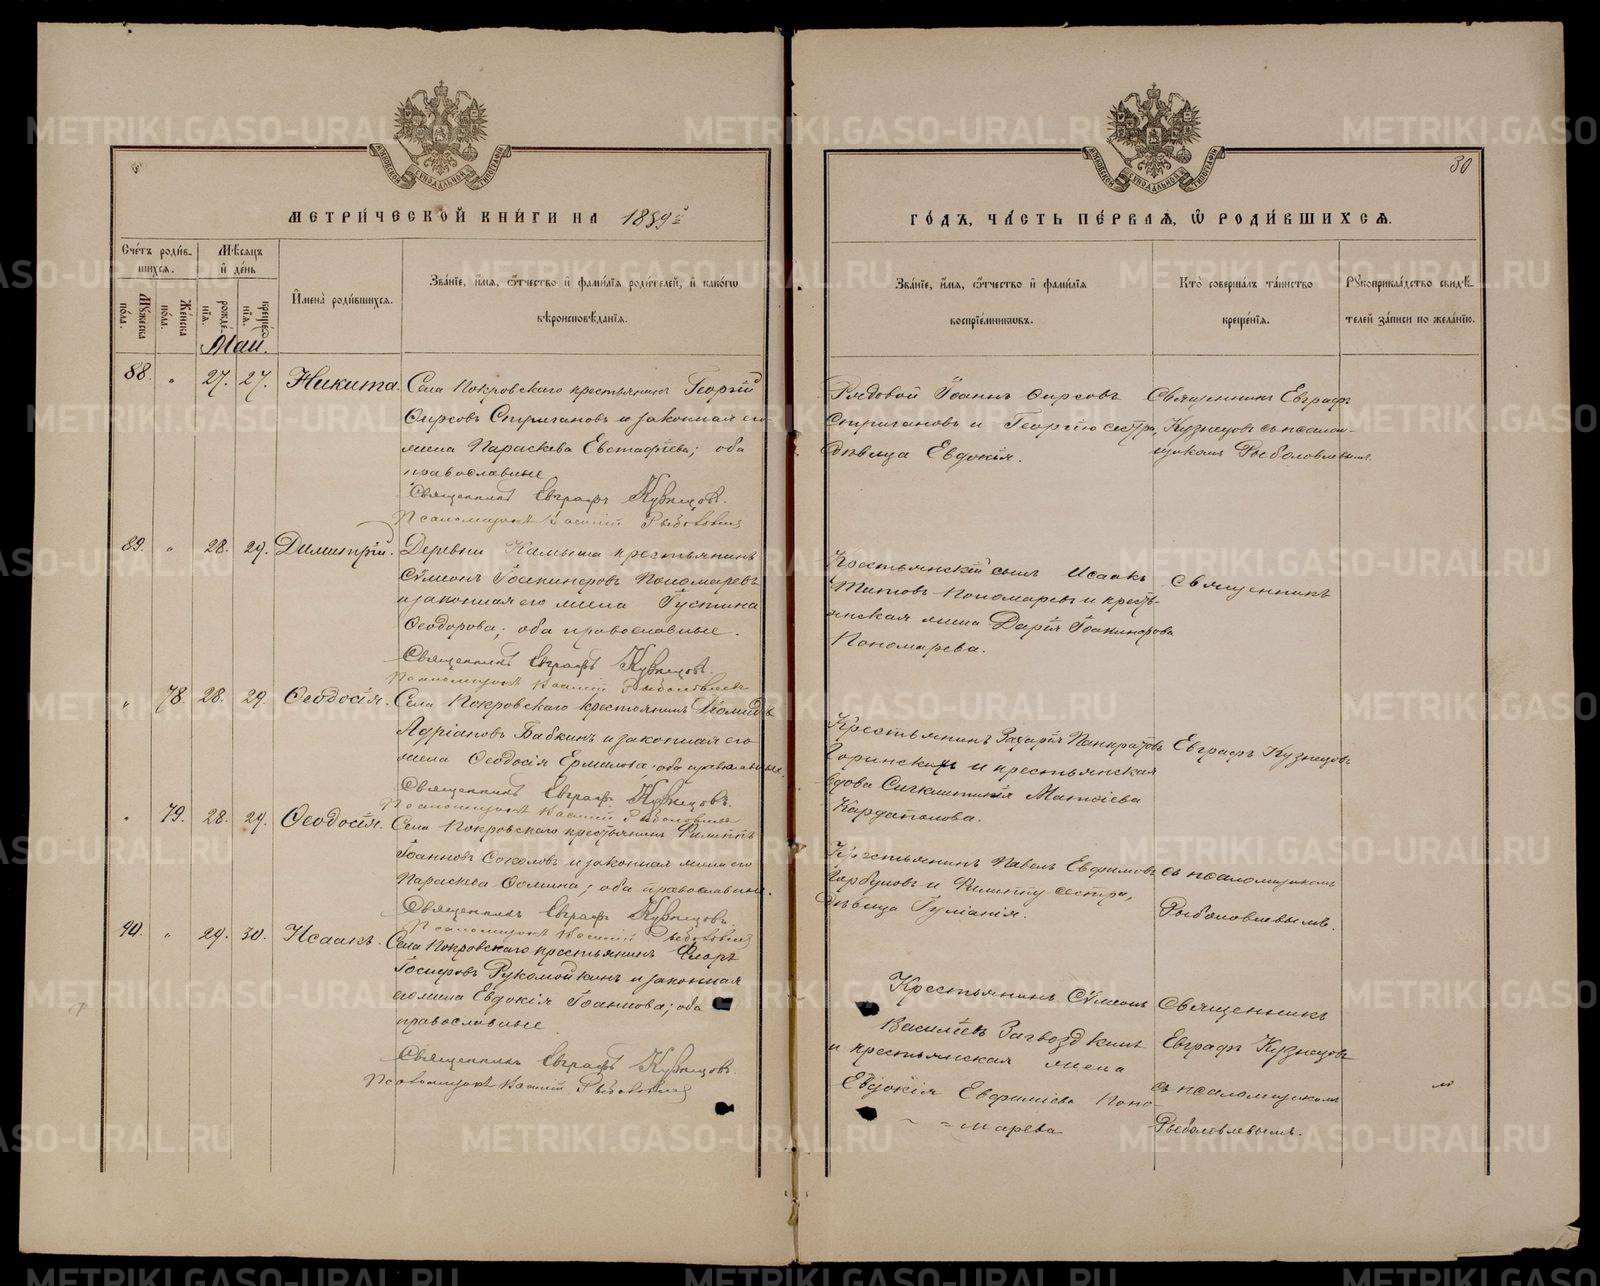 МЕТРИЧЕСКОЙ КНИГИ НА 1899й
Счетъ родившихся.
Мѣсяцъ и день
Имена родившихся.
Званіе, имя, отчество и фамилія родителей, и какого
вѣроисповѣданія.
Мужеска пола.
Женска пола.
рожденія.
крещенія.
Май.
88. " 27. 27. Никита. Села Покровскаго крестьянинъ Георгій
Фирсовъ Стригановъ и законная его
жена Параскева Евстафіева; оба
православные
Священникъ Евграфъ Кузнецовъ.
Псаломщикъ Василій Рыболовлевъ
89. " 28. 29. Димитрій. Деревни Камыша крестьянинъ
Сѵмеонъ Іоакинфовъ Пономаревъ
и законная его жена Іустина
Ѳеодорова; оба православные.
Священникъ Евграфъ Кузнецовъ.
Псаломщикъ Василій Рыболовлевъ
" 78. 28. 29. Ѳеодосія. Села Покровскаго крестьянинъ Діомидъ
Адріановъ Бабкинъ и законная его
жена Ѳеодосія Ермилова; оба православные.
Священникъ Евграфъ Кузнецовъ.
Псаломщикъ Василій Рыболовлевъ
" 79. 28. 29. Ѳеодосія. Села Покровскаго крестьянинъ Филиппъ
Іоанновъ Соколовъ и законная жена его
Параскева Ѳомина; оба православные.
Священникъ Евграфъ Кузнецовъ.
Псаломщикъ Василій Рыболовлевъ
90. " 29. 30. Исаакъ. Села Покровскаго крестьянинъ Флоръ
Іосифовъ Рукомойкинъ и законная
его жена Евдокія Іоаннова; оба
православные
Священникъ Евграфъ Кузнецовъ.
Псаломщикъ Василій Рыболовлевъ
30
ГОДЪ, ЧАСТЬ ПЕРВАЯ, Ѡ РОДИВШИХСЯ.
Званіе, имя, отчество и фамилія
воспріемниковъ.
Кто совершалъ таинство
крещенія.
Рукоприкладство свидѣ-
телей записи по желанію.
Рядовой Іоаннъ Фирсовъ
Стригановъ и Георгію сестра,
дѣвица Евдокія.
Священникъ Евграфъ
Кузнецовъ съ псалом-
щикомъ Рыболовлевымъ.
Крестьянскій сынъ Исаакъ
Титовъ Пономаревъ и кресть-
янская жена Дарія Іоакинфова
Пономарева.
Священникъ
Крестьянинъ Захарія Панкратовъ
Горинскихъ и крестьянская
вдова Сигклитикія Матѳіева
Кардаполова.
Евграфъ Кузнецовъ
Крестьянинъ Павелъ Евфимовъ
Горбуновъ и Филиппу сестра,
дѣвица Іуліанія.
съ псаломщикомъ
Рыболовлевымъ.
Крестьянинъ Сѵмеонъ
Василіевъ Загвоздкинъ
и крестьянская жена
Евдокія Евфиміева Поно-
марева
Священникъ
Евграфъ Кузнецовъ
съ псаломщикомъ
Рыболовлевымъ.
МОСКОВСКОЙ СѴНОДАЛЬНОЙ ТИПОГРАФІИ
МОСКОВСКОЙ СѴНОДАЛЬНОЙ ТИПОГРАФІИ
METRIKI.GASO-URAL.RU